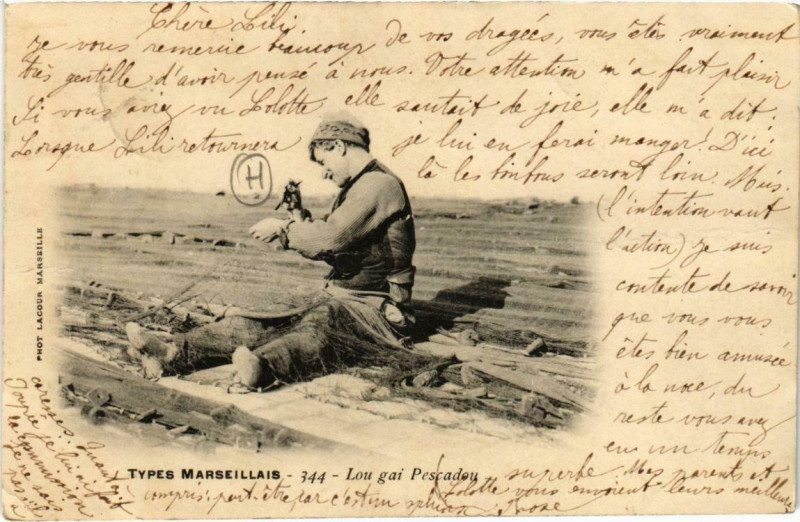 Chère Lili.
je vous remercie beaucoup de vos dragées, vous êtes vraiment
très gentille d'avoir pensé à nous. Votre attention m'a fait plaisir
Si vous aviez vu Lolotte elle sautait de joie, elle m'a dit:
Lorsque Lili retournera je lui en ferai manger! D'ici
là les bonbons seront loin. Mais.
(l'intention vaut
l'action) je suis
contente de savoir
que vous vous
êtes bien amusée
à la noce, du
reste vous avez
eu un temps
superbe. Mes parents et
Lolotte vous envoient leurs meilleures
caresses. Quant à
Toupie je lui ai fait
la commission
je ne sais
pas s'il a
compris: peut-être par c'est un sphinx Rose
H
PHOT LACOUR MARSEILLE
TYPES MARSEILLAIS - 344 - Lou gai Pescadou